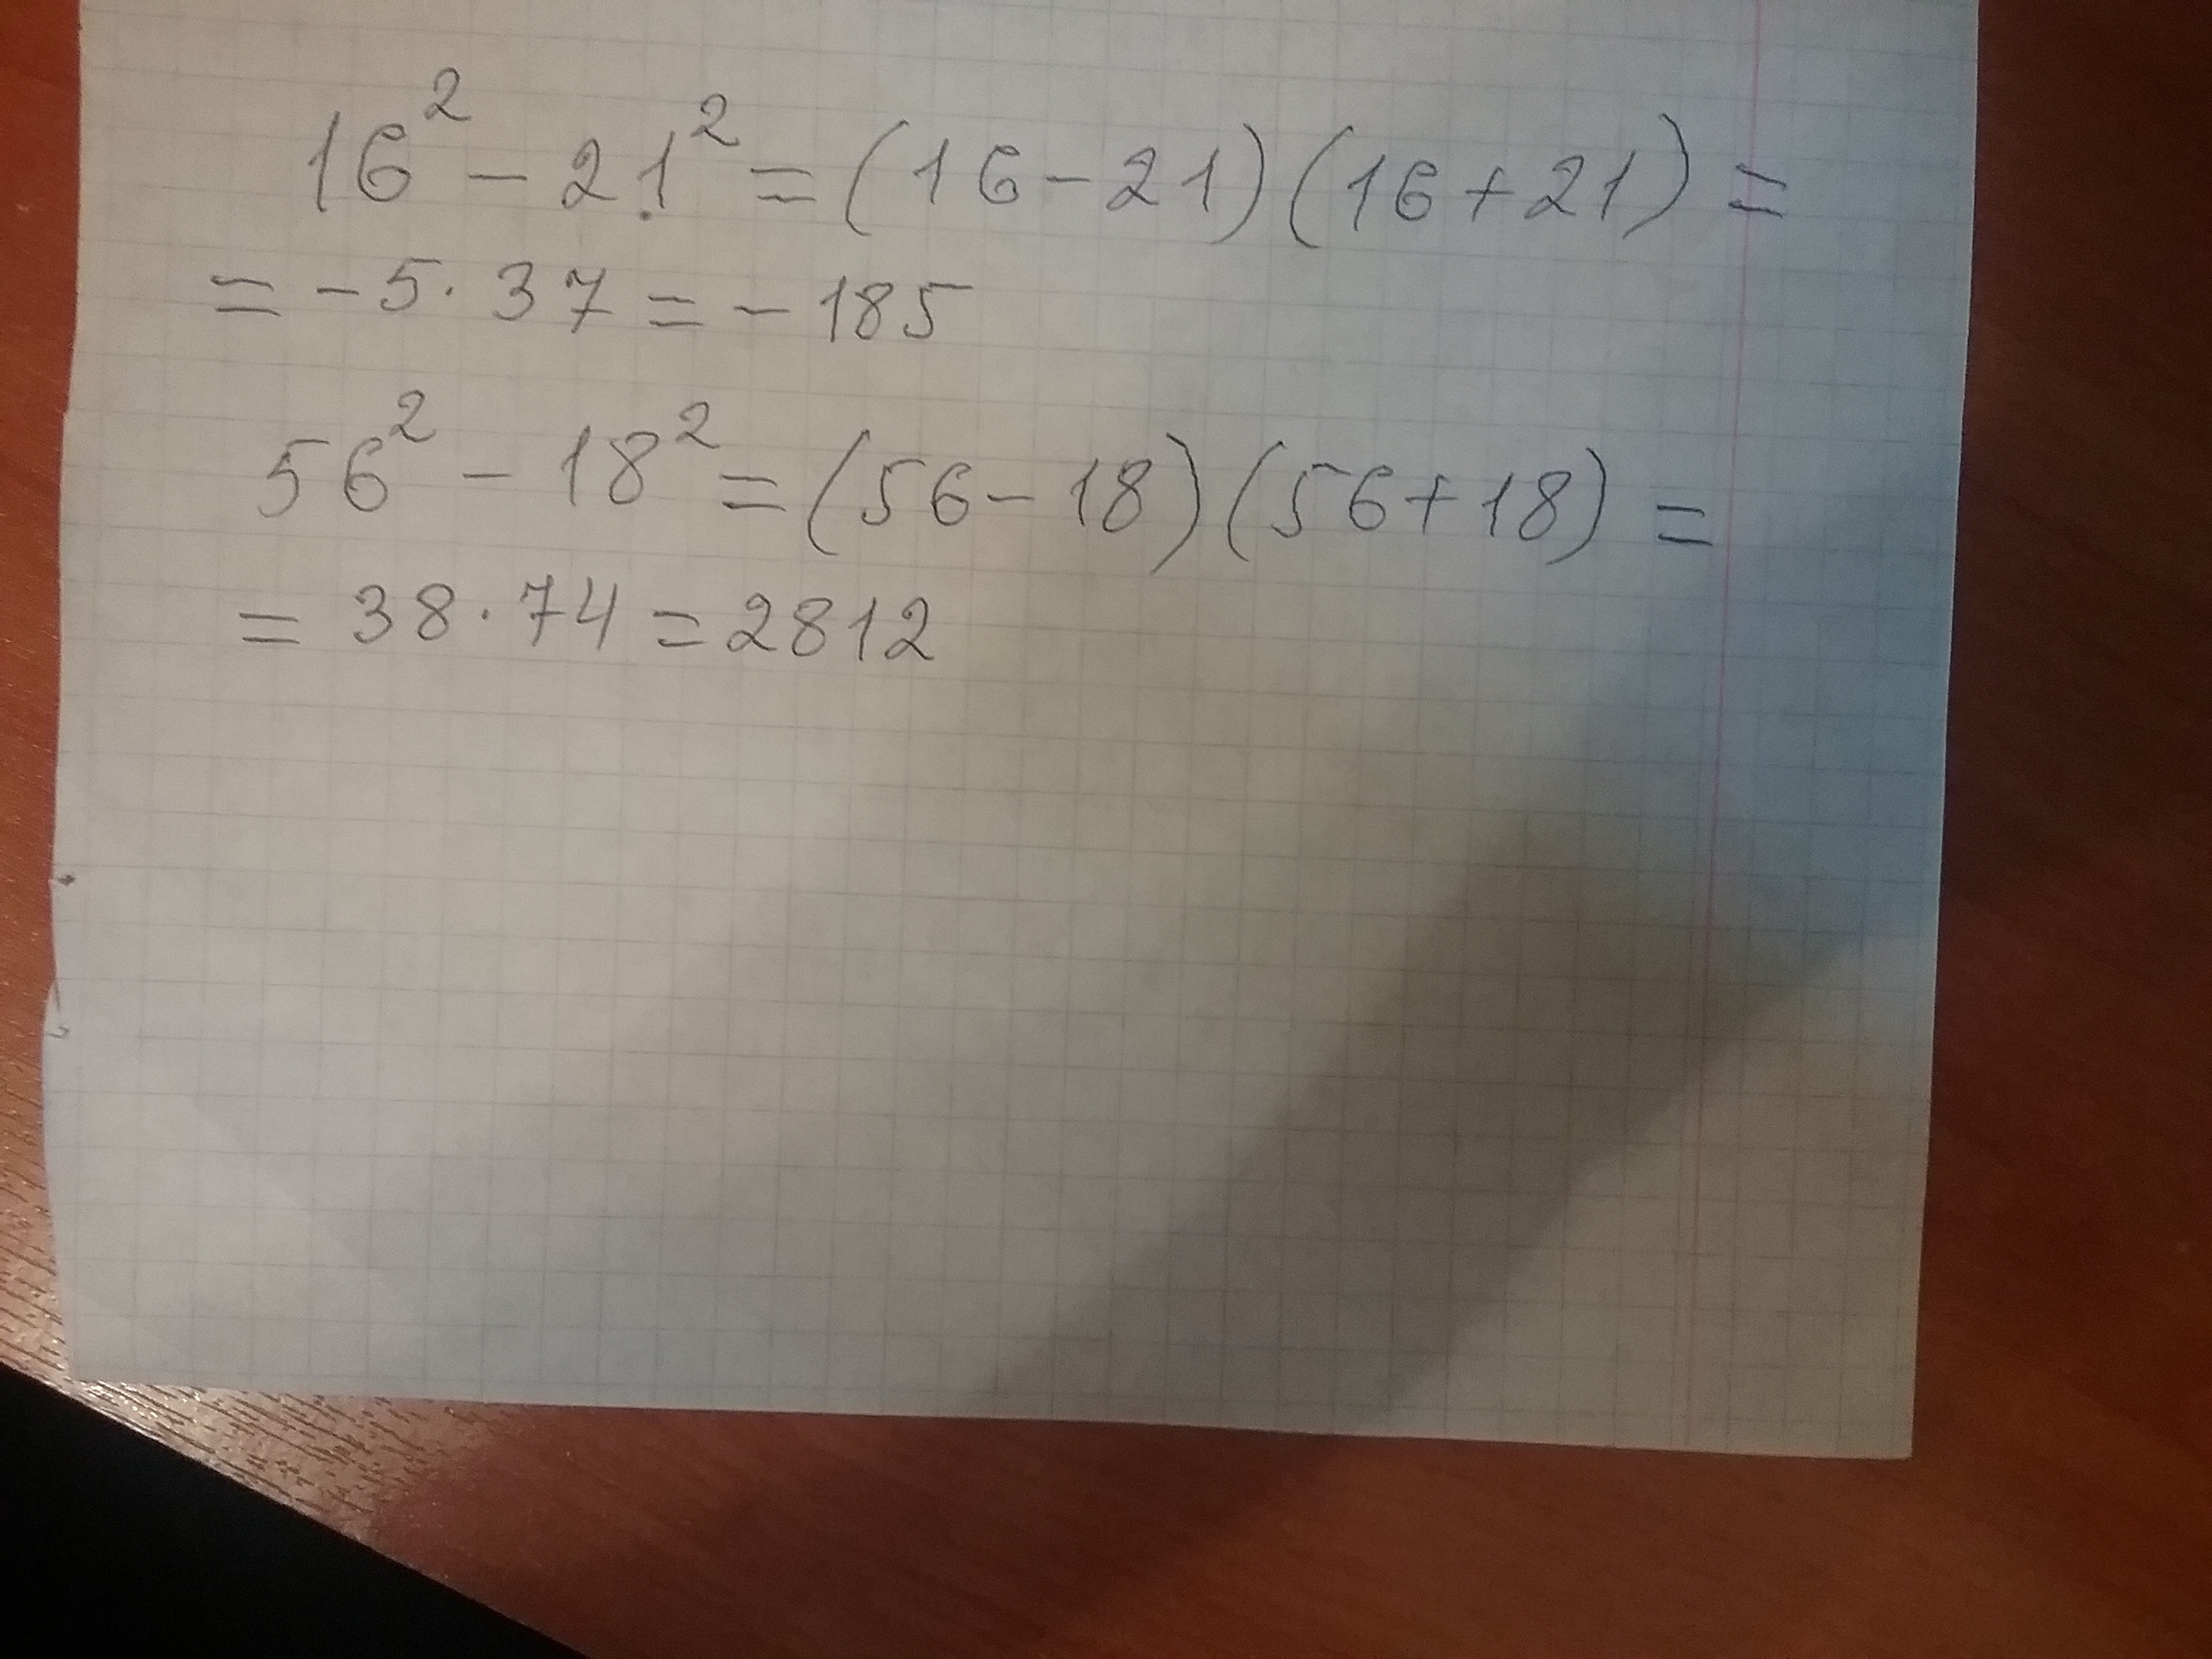 16² - 21² = (16-21)(16+21) =
= -5 · 37 = -185
56² - 18² = (56-18)(56+18) =
= 38 · 74 = 2812